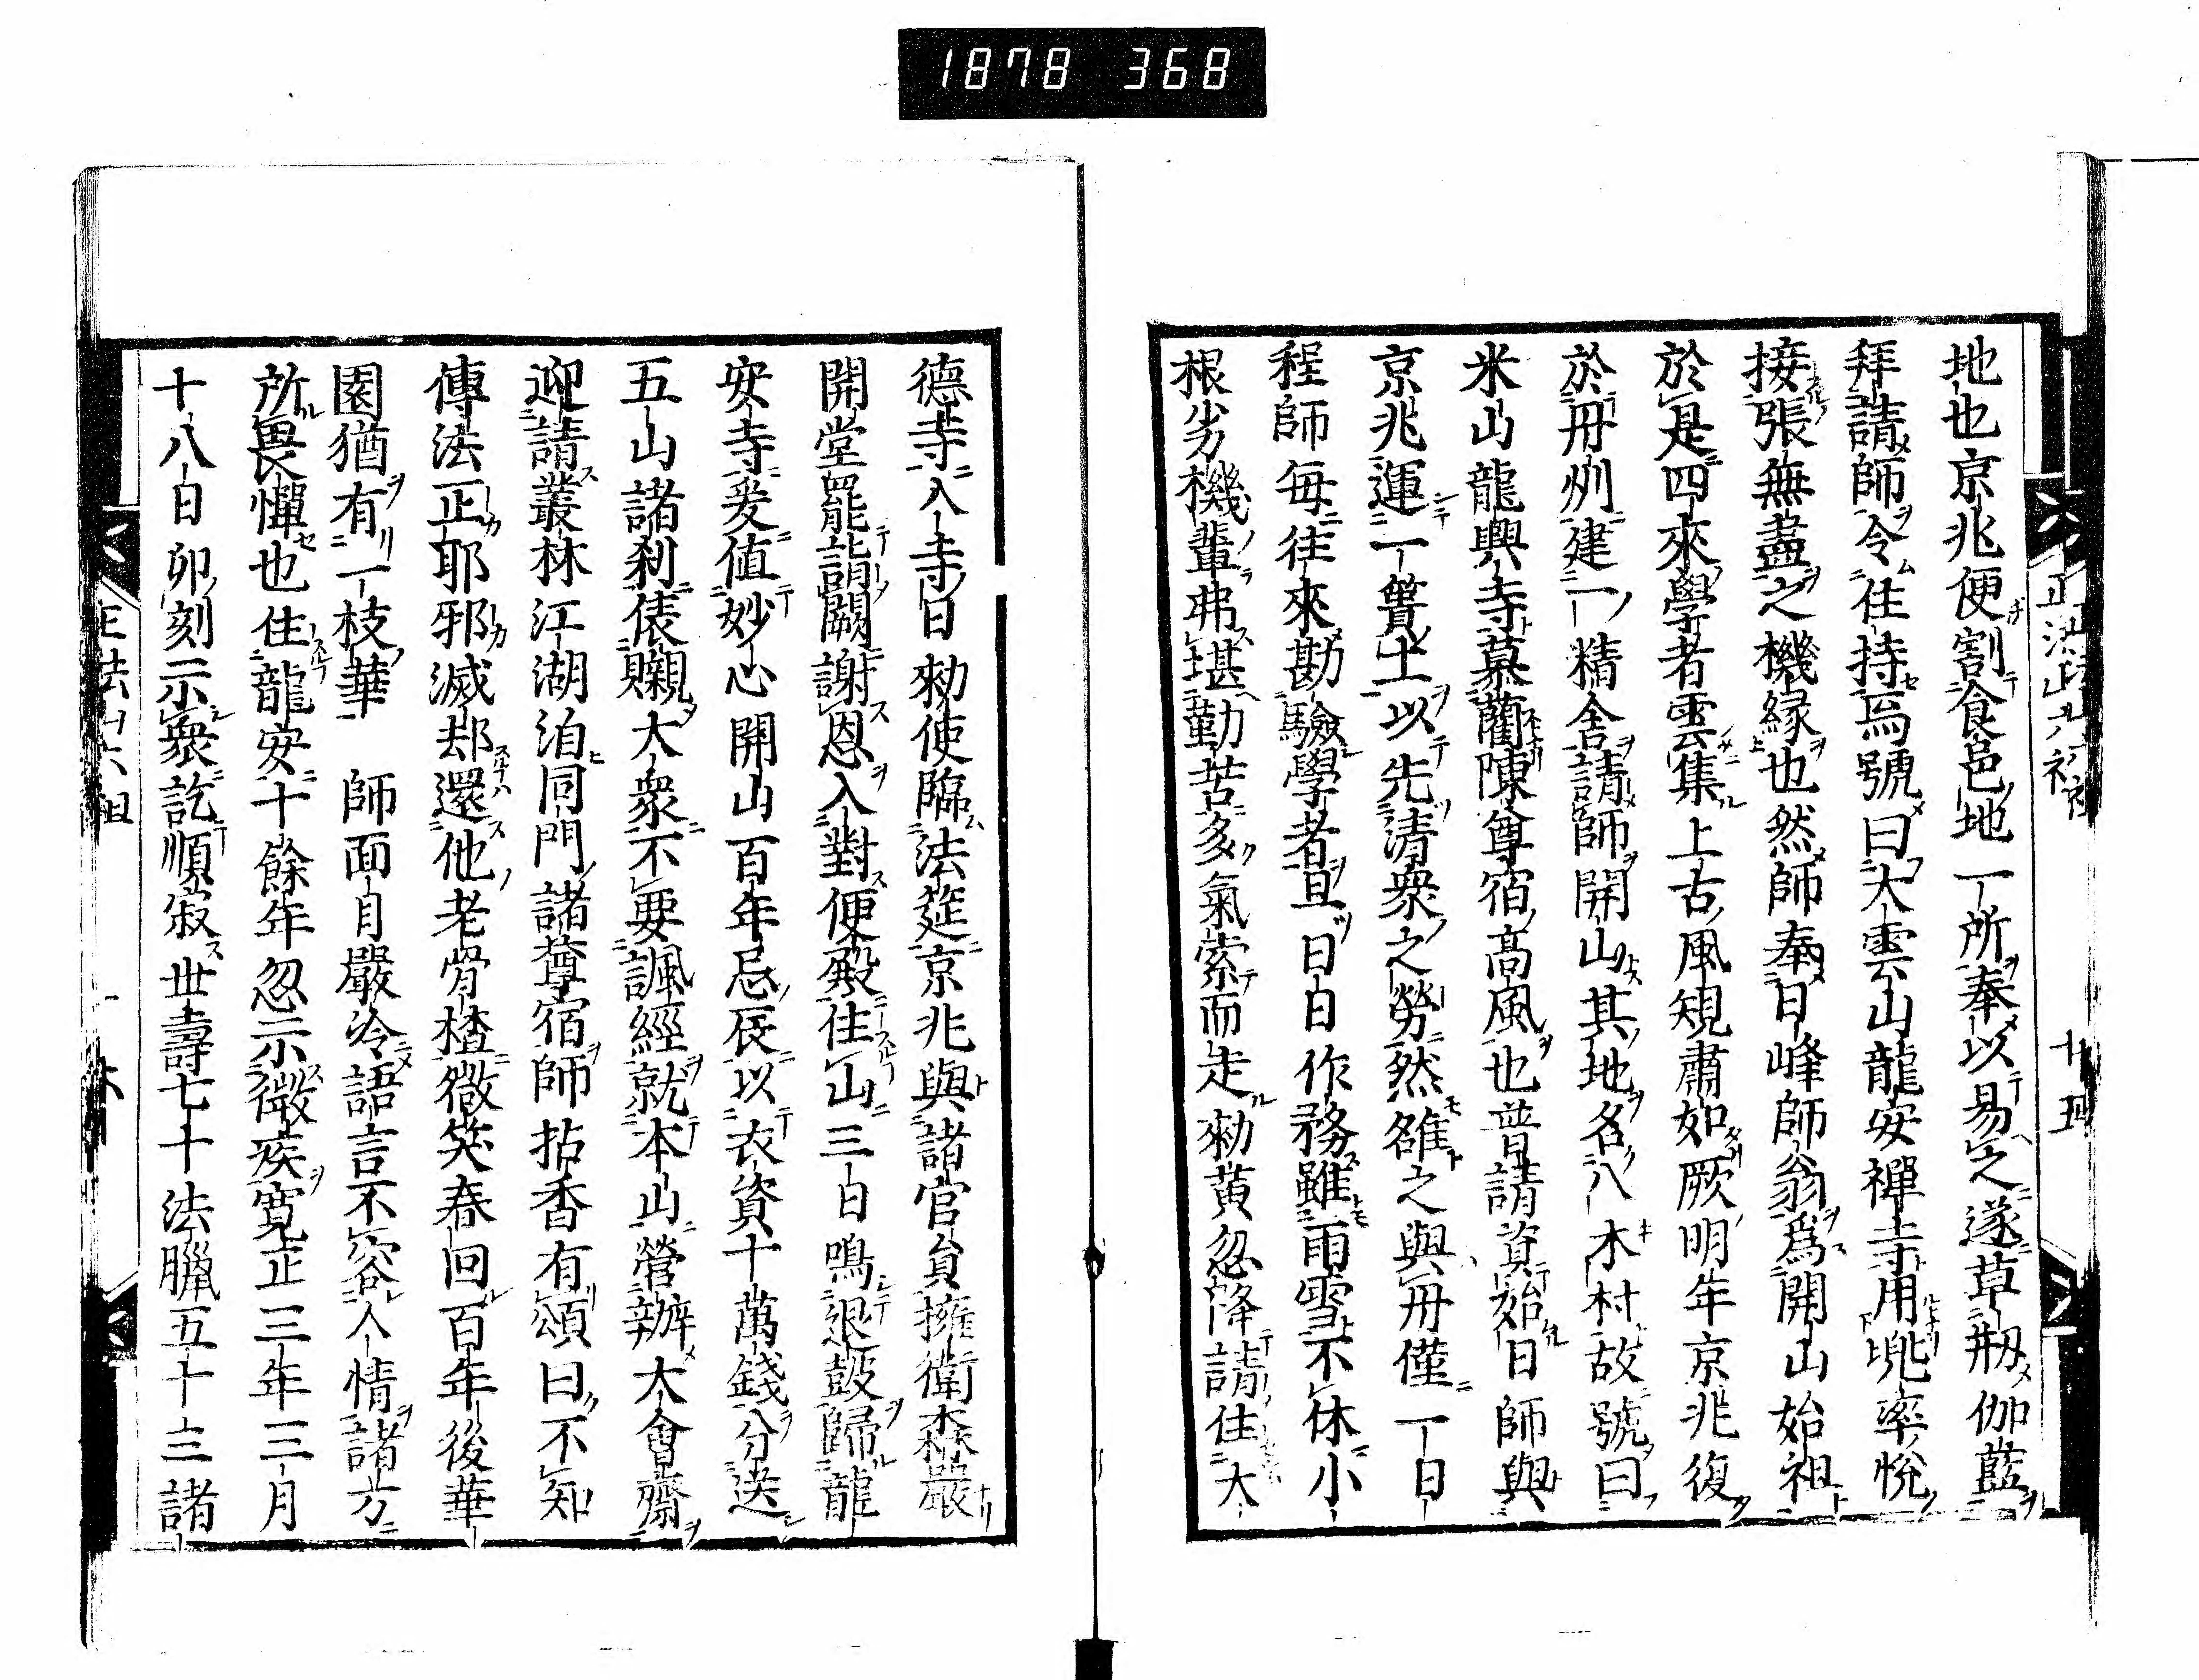 1878 368
地也京兆便割食邑地一所奉以易之遂草刱伽藍
拜請師令住持焉號曰大雲山龍安禪寺用兜率悅
接張無盡之機緣也然師奉日峰師翁爲開山始祖
於是四來學者雲集上古風規肅如厥明年京兆復
於丹州建一精舍請師開山其地名八木村故號曰
米山龍興寺慕藺陳尊宿高風也普請資始日師與
京兆運一簣土以先清衆之勞然雒之與丹僅一日
程師每往來勘驗學者旦日日作務雖雨雪不休小
根劣機輩弗堪勤苦多氣索而走勑黄忽降請住大
德寺入寺日勑使臨法筵京兆與諸官貟擁衛森嚴
開堂罷詣闕謝恩入對便殿住山三日鳴退鼓歸龍
安寺爰値妙心開山百年忌辰以衣資十萬錢分送
五山諸刹俵䞋大衆不要諷經就本山營辦大會齋
迎請叢林江湖洎同門諸尊宿師拈香有頌曰不知
傳法正耶邪滅却還他老骨楂微笑春回百年後華
園猶有一枝華 師面目嚴冷語言不容人情諸方
所畏憚也住龍安十餘年忽示微疾寬正三年三月
十八日卯刻示衆訖順寂世壽七十法臘五十三諸